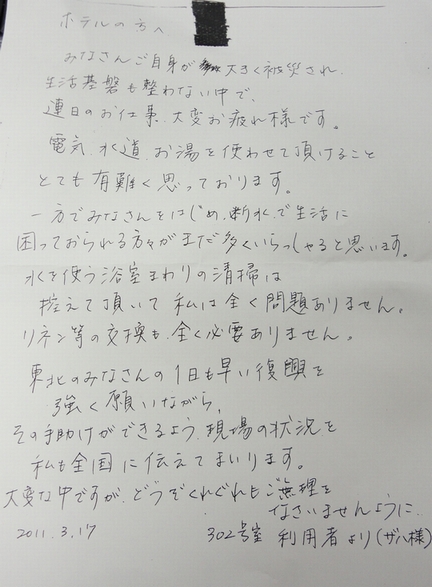 ホテルの方へ
みなさんご自身が 大きく被災され、
生活基盤も整わない中で、
連日のお仕事、大変お疲れ様です。
電気、水道、お湯を使わせて頂けること
とても有難く思っております。
一方でみなさんをはじめ、断水で生活に
困っておられる方々がまだ多くいらっしゃると思います。
水を使う浴室まわりの清掃は
控えて頂いて私は全く問題ありません。
リネン等の交換も、全く必要ありません。
東北のみなさんの1日も早い復興を
強く願いながら、
その手助けができるよう、現場の状況を
私も全国に伝えてまいります。
大変な中ですが、どうぞくれぐれもご無理を
なさいませんように…
2011.3.17 302号室 利用者より(ザハ様)